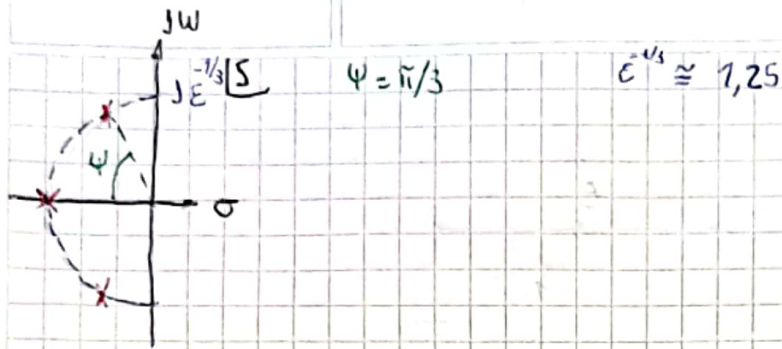 jW
jε^{-1/3} S
Ψ = π/3
ε^{-1/3} ≅ 1,25
Ψ
σ